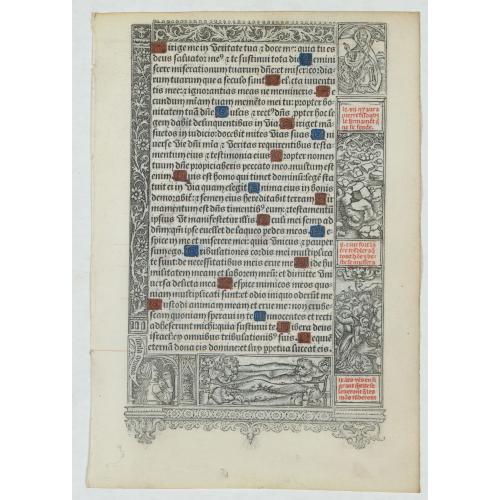 Dirige me in veritate tua ⁊ doce me: quia tu es
deus saluator me⁹ ⁊ te sustinui tota die. Remini
scere miserationum tuarum dñe: et misericordia
rum tuarum que a seculo sunt. Delicta iuuentu
tis mee: ⁊ ignorantias meas ne memineris. Se
cundum mĩam tuam memẽto mei tu: propter bo
nitatem tuã dñe. Dulcis ⁊ rect⁹ dñs: propter hoc le
gem dabit delinquentibus in via. Diriget mã
suetos in iudicio: docebit mites vias suas. Uni
uerse vie dñi mĩa ⁊ veritas requirentibus testa
mentum eius ⁊ testimonia eius. Propter nomen
tuum dñe propiciaberis peccato meo: multum est
enim. Quis est homo qui timet dominũ: legẽ sta
tuit ei in via quam elegit. Anima eius in bonis
demorabit̃: ⁊ semen eius hereditabit terram. Fir
mamentum est dñs timentib⁹ eum: ⁊ testamentũ
ipsius vt manifestetur illis. Oculi mei semp ad
dñm: qm̃ ipse euellet de laqueo pedes meos. Re
spice in me et miserere mei: quia vnicus ⁊ pauper
sum ego. Tribulationes cordis mei multiplica
te sunt: de necessitatibus meis erue me. Uide hu
militatem meam et laborem meũ: et dimitte vni
uersa delicta mea. Respice inimicos meos: quo
niam multiplicati sunt: et odio iniquo oderũt me
Custodi animam meam et erue me: non erube
scam quoniam speraui in te. Innocentes et recti
adheserunt michi: quia sustinui te. Libera deus
israel: ex omnibus tribulationib⁹ suis. Requiẽ
eternã dona eis domine: et lux ppetua luceat eis.